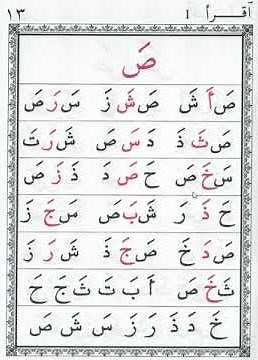 اَقرأ ١ ١٣
صَ
صَ أَ شَ صَ شَ زَ سَ رَ صَ
صَ ثَ ذَ دَ سَ صَ شَ رَ تَ
سَ خَ صَ حَ صَ دَ ذَ زَ صَ
حَ ذَ رَ شَ بَ صَ سَ جَ زَ
صَ دَ خَ صَ جَ ذَ شَ رَ زَ
ثَ خَ صَ أَ بَ تَ ثَ جَ حَ
خَ دَ ذَ رَ زَ سَ شَ صَ